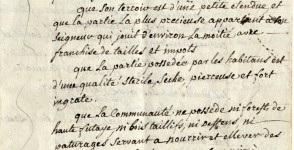 que Son terroir est d'une petite Etendue, et
que la partie La plus precieuse appartient a son
Seigneur qui jouit d'environ La moitié avec
franchise de tailles et impots
que La partie possedée par les habitans est
d'une qualité Sterile Seche, pierreuse et fort
ingrate.
que La Communauté ne possede ni forests de
haute futaye ni bois taillifs, ni deffens ni
paturages Servant a nourrir et Elever des